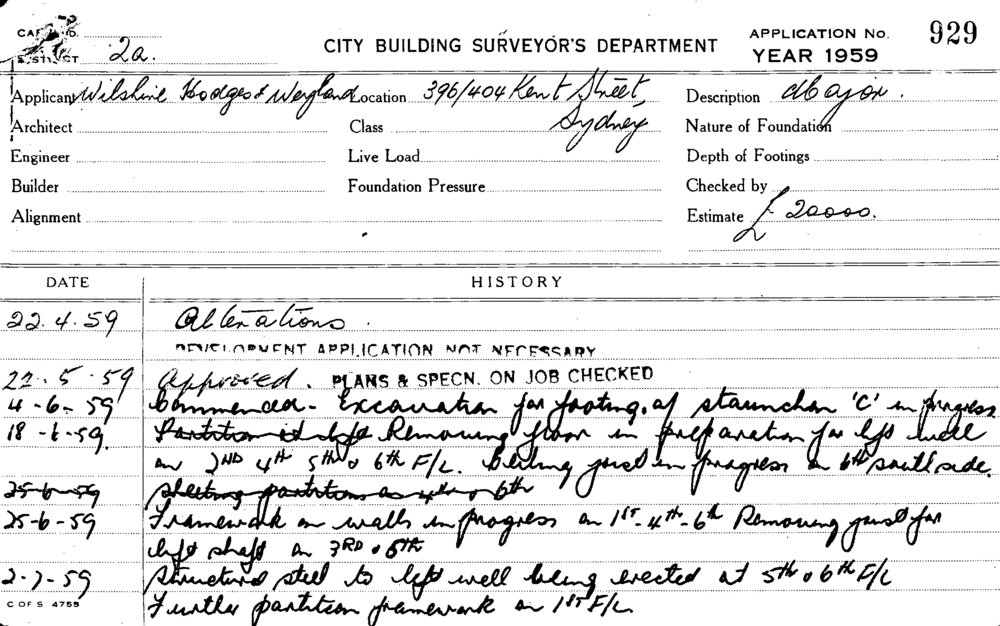 CITY BUILDING SURVEYOR'S DEPARTMENT
APPLICATION No. 929
YEAR 1959
2a.
Applicant Wilshire Hodges & Weyland Location 396/404 Kent Street, Description Major.
Architect Class Sydney Nature of Foundation
Engineer Live Load Depth of Footings
Builder Foundation Pressure Checked by
Alignment Estimate £ 20000.
DATE HISTORY
22.4.59 Alterations.
DEVELOPMENT APPLICATION NOT NECESSARY
22.5.59 Approved. PLANS & SPECN. ON JOB CHECKED
4-6-59 Commenced - Excavation for footing of staunchon 'C' in progress
18-6-59. Partition at lift Removing floor in preparation for lift well
on 2ND 4th 5th & 6th F/L. Ceiling joist in progress on 6th south side.
25-6-59 Sheeting partitions on 4th & 6th
25-6-59 Framework on walls in progress on 1ST-4th-6th Removing joist for
lift shaft on 3RD & 5th
2-7-59 Structural steel to lift well being erected at 5th & 6th F/L
C OF S 4755 Further partition framework on 1ST F/L